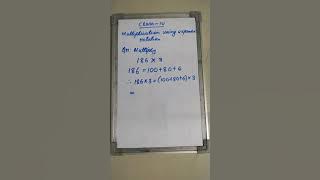 Class - IV
Multiplication using expanded
notation
Qn: Multiply
186 × 3
186 = 100+80+6
∴ 186×3 = (100+80+6) × 3
=